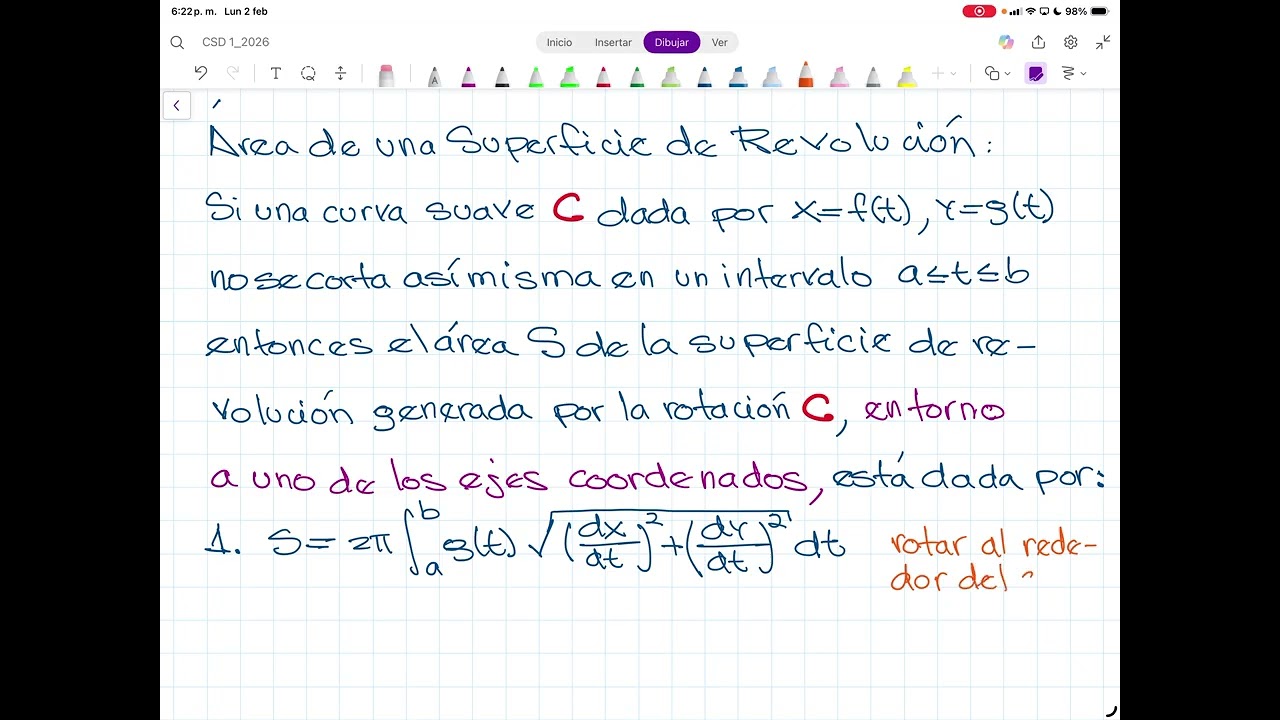 6:22 p. m. Lun 2 feb
98%
CSD 1_2026
Inicio Insertar Dibujar Ver
Área de una Superficie de Revolución:
Si una curva suave C dada por x=f(t), Y=g(t)
no se corta así misma en un intervalo a≤t≤b
entonces el área S de la superficie de re-
volución generada por la rotación C, en torno
a uno de los ejes coordenados, está dada por:
1. S = 2π ∫_a^b g(t) √((dx/dt)² + (dy/dt)²) dt
rotar al rede-
dor del